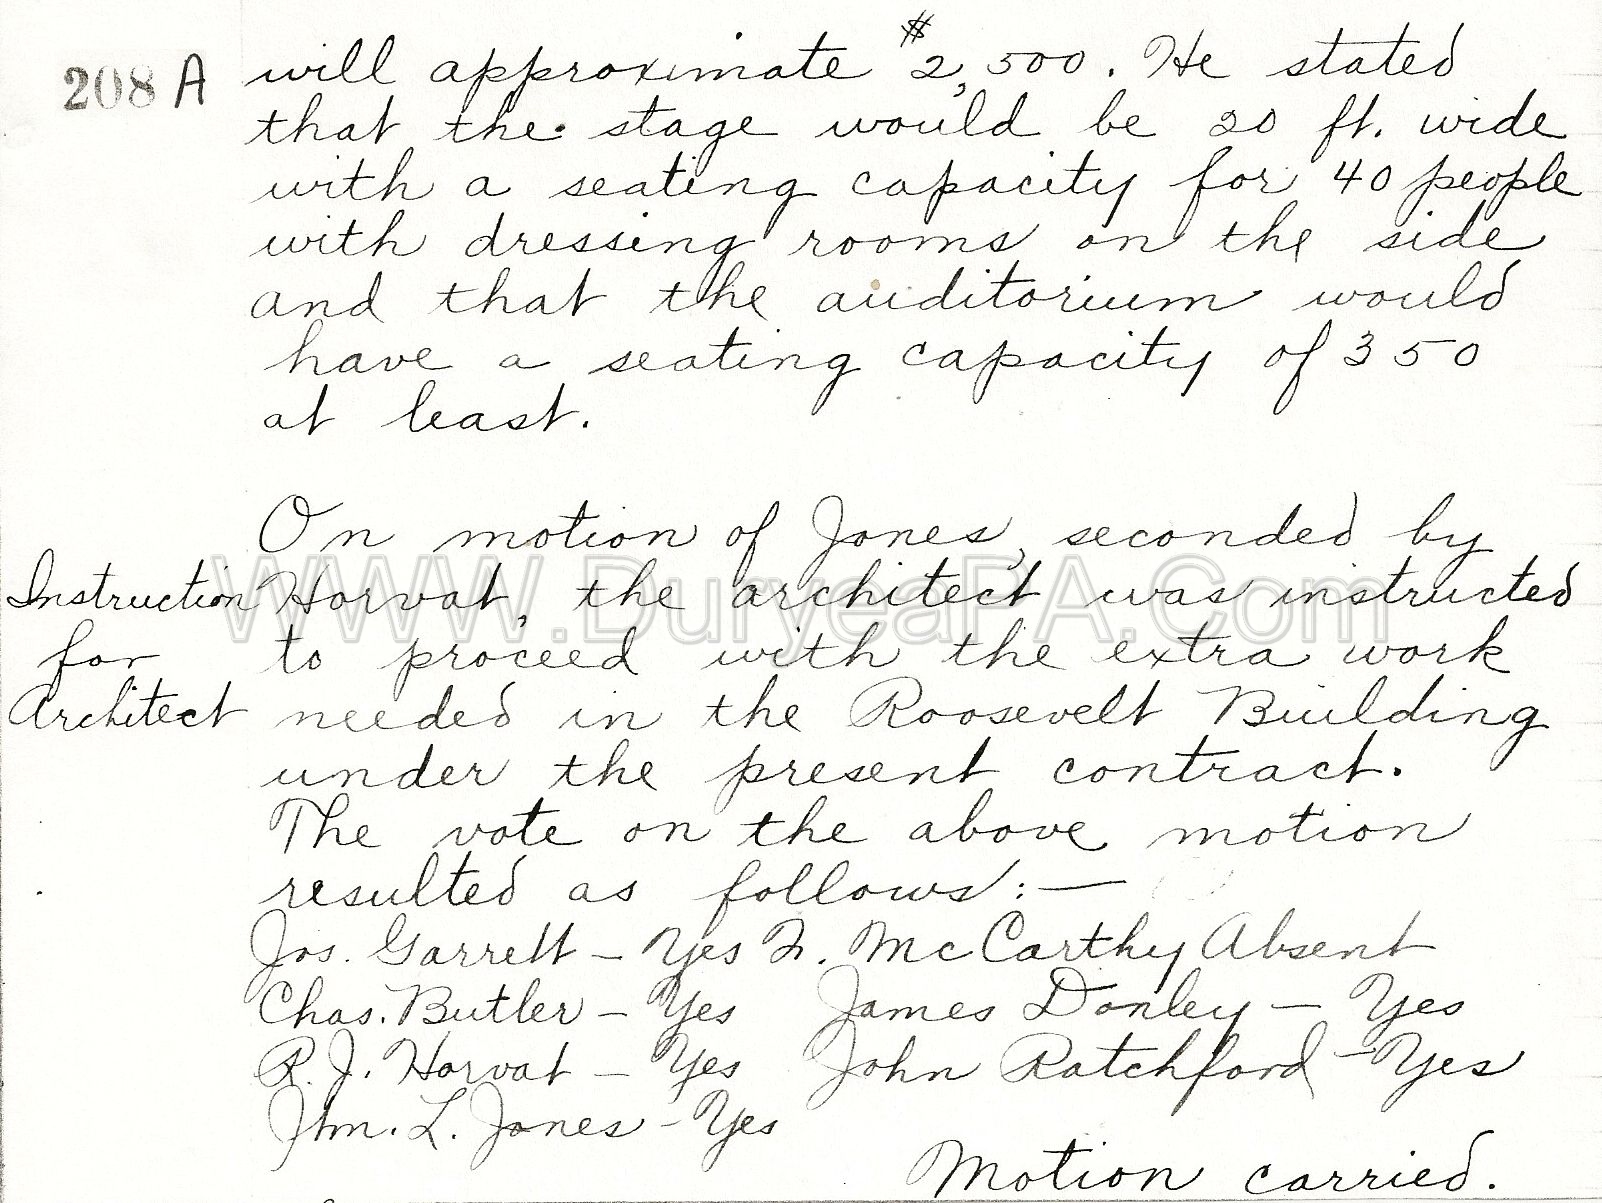 208 A will approximate $2,500. He stated
that the stage would be 20 ft. wide
with a seating capacity for 40 people
with dressing rooms on the side
and that the auditorium would
have a seating capacity of 350
at least.
On motion of Jones, seconded by
Instruction Horvat, the architect was instructed
for to proceed with the extra work
Architect needed in the Roosevelt Building
under the present contract.
The vote on the above motion
resulted as follows:—
Jos. Garrett – Yes F. McCarthy Absent
Chas. Butler – Yes James Donley – Yes
R. J. Horvat – Yes John Ratchford – Yes
Wm. L. Jones – Yes
Motion carried.
WWW.DuryeaPA.Com